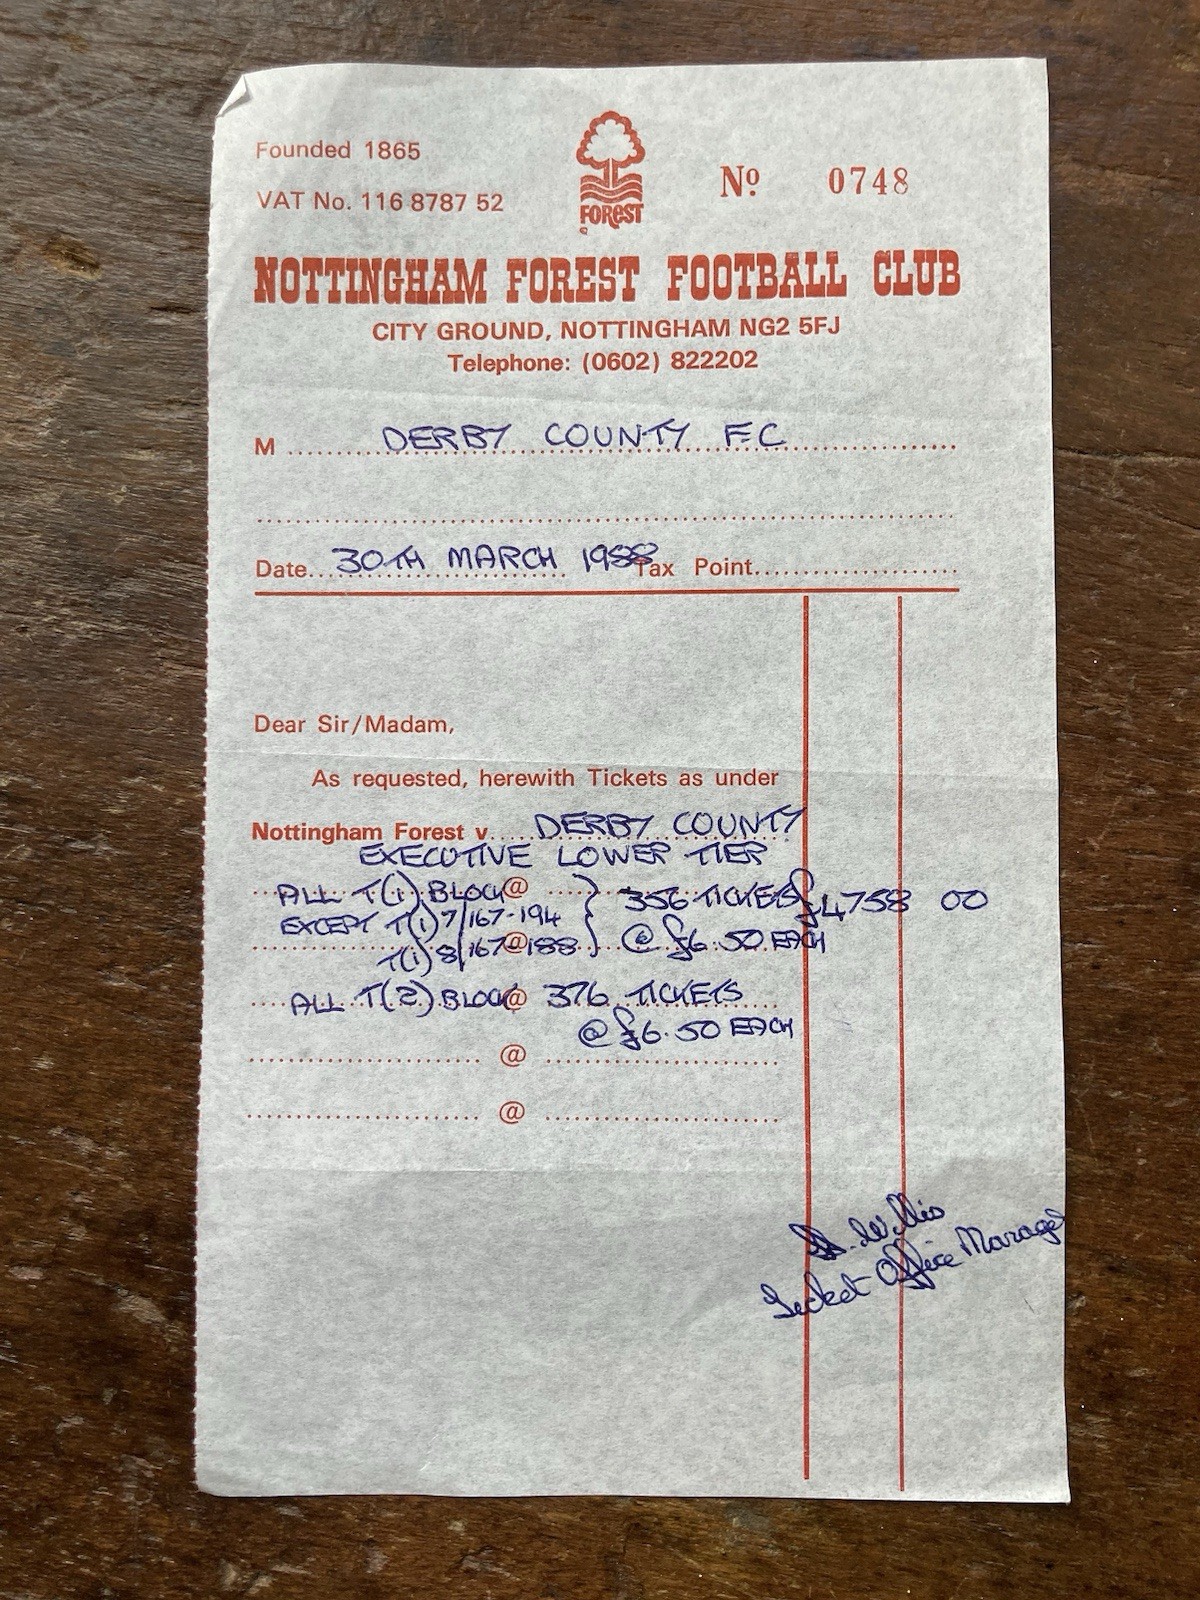 Founded 1865
VAT No. 116 8787 52
FOREST
Nº 0748
NOTTINGHAM FOREST FOOTBALL CLUB
CITY GROUND, NOTTINGHAM NG2 5FJ
Telephone: (0602) 822202
M DERBY COUNTY F.C
Date 30TH MARCH 1988 Tax Point
Dear Sir/Madam,
As requested, herewith Tickets as under
Nottingham Forest v DERBY COUNTY
EXECUTIVE LOWER TIER
ALL T(1) BLOCK @ } 356 TICKETS £4758 00
EXCEPT T(1) 7/167-194
T(1) 8/167-188 @ @ £6.50 EACH
ALL T(2) BLOCK @ 376 TICKETS
@ £6.50 EACH
@
@
A. Willis
Ticket Office Manager